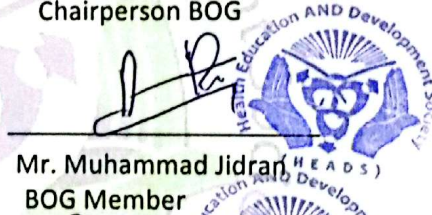 Chairperson BOG
Health Education AND Development Society
(HEADS)
Mr. Muhammad Jidran
BOG Member
AND Develop